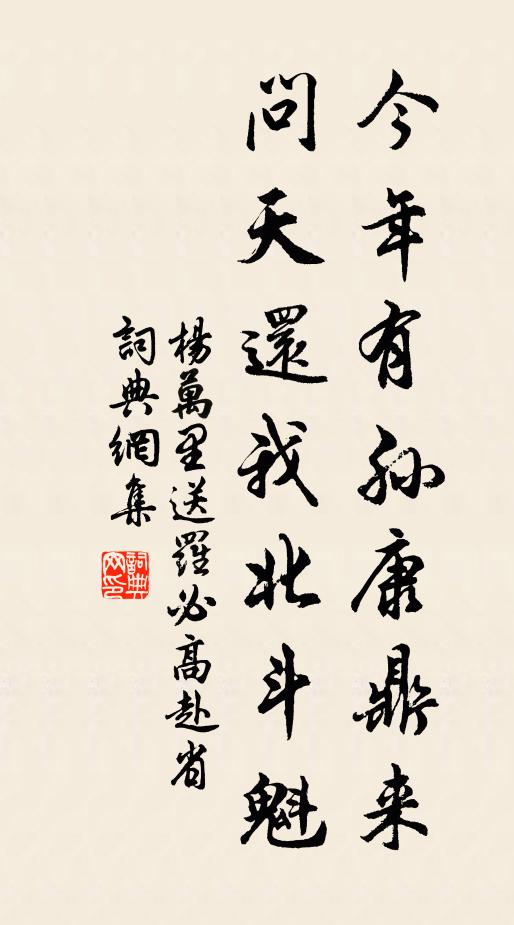 今年有孙康鼎来
问天還我北斗魁
楊萬里送羅必高赴省
詞典網集
詞典
网印